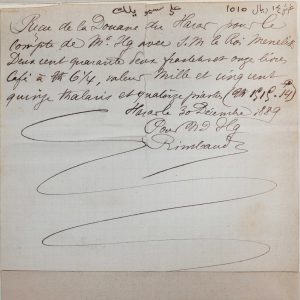 Reçu de la Douane du Harar pour le
compte de Mr Ilg avec S.M. le Roi Menelik
Deux cent quarante deux frasleh et onze livres
café à 6 1/4, valeur Mille et cinq cent
quinze thalaris et quatorze piastres
Harar le 30 Décembre 1889
Pour Md Ilg
Rimbaud